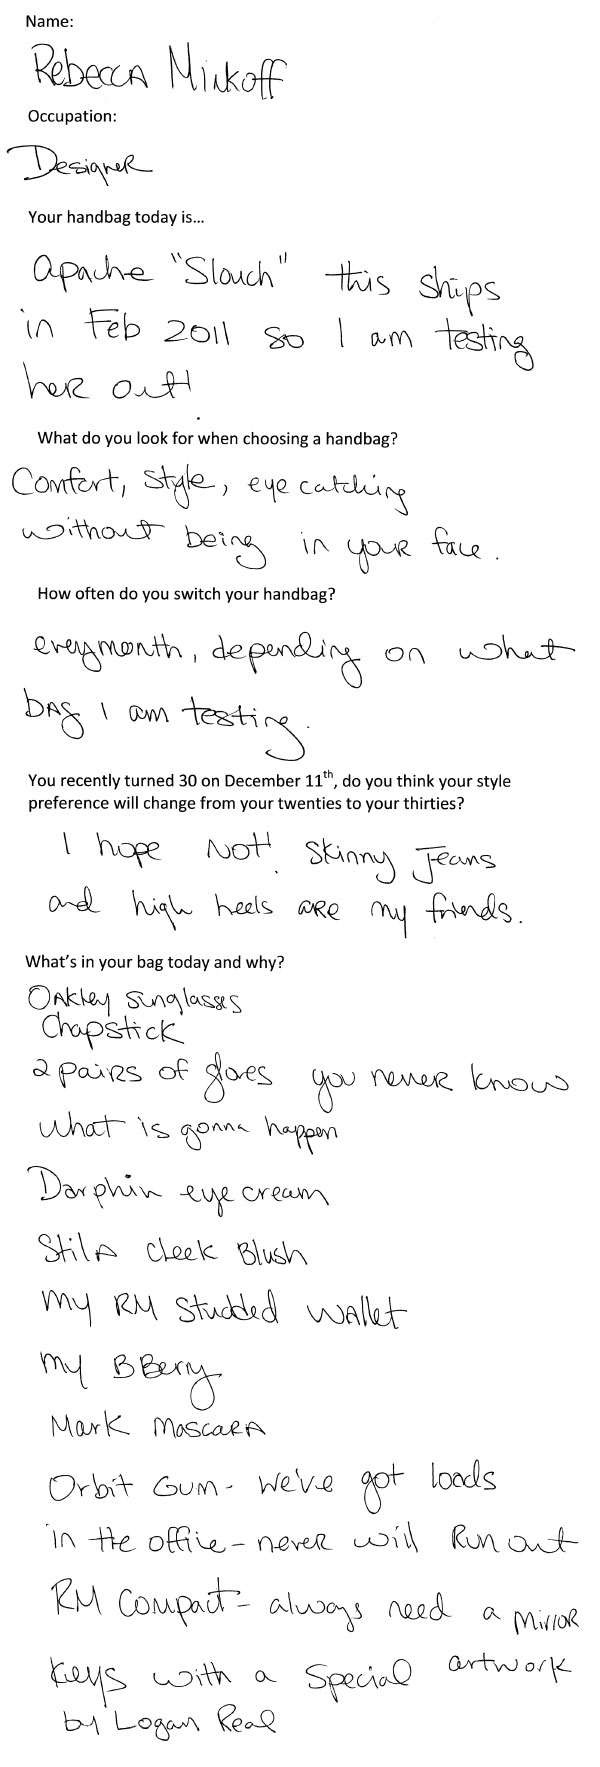 Name:
Rebecca Minkoff
Occupation:
Designer
Your handbag today is...
Apache "Slouch" this ships
in Feb 2011 so I am testing
her out!
What do you look for when choosing a handbag?
Comfort, Style, eye catching
without being in your face.
How often do you switch your handbag?
everymonth, depending on what
bag I am testing.
You recently turned 30 on December 11th, do you think your style
preference will change from your twenties to your thirties?
I hope Not! Skinny Jeans
and high heels are my friends.
What's in your bag today and why?
Oakley Sunglasses
Chapstick
2 pairs of gloves you never know
what is gonna happen
Darphin eye cream
Stila cheek Blush
My RM Studded Wallet
My BBerry
Mark Mascara
Orbit Gum - we've got loads
in the office - never will Run out
RM Compact - always need a Mirror
Keys with a Special artwork
by Logan Real